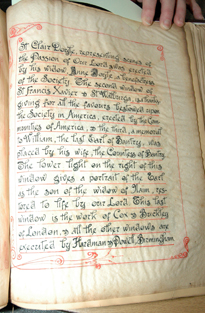 St Clair Doyle, representing scenes of
the Passion of Our Lord was erected
by his widow, Anne Doyle, a benefactress
of the Society. The second window of
St Francis Xavier & St Walburga, is thanks
giving for all the favours bestowed upon
the Society in America, erected by the Com
munities of America, & the third, a memorial
to William, the last Earl of Bantry, was
placed by his wife, the Countess of Bantry.
The lower light on the right of this
window gives a portrait of the Earl
as the son of the widow of Naim, res-
tored to life by our Lord. This last
window is the work of Cox & Buckley
of London, & all the other windows are
executed by Hardman & Powel, Birmingham